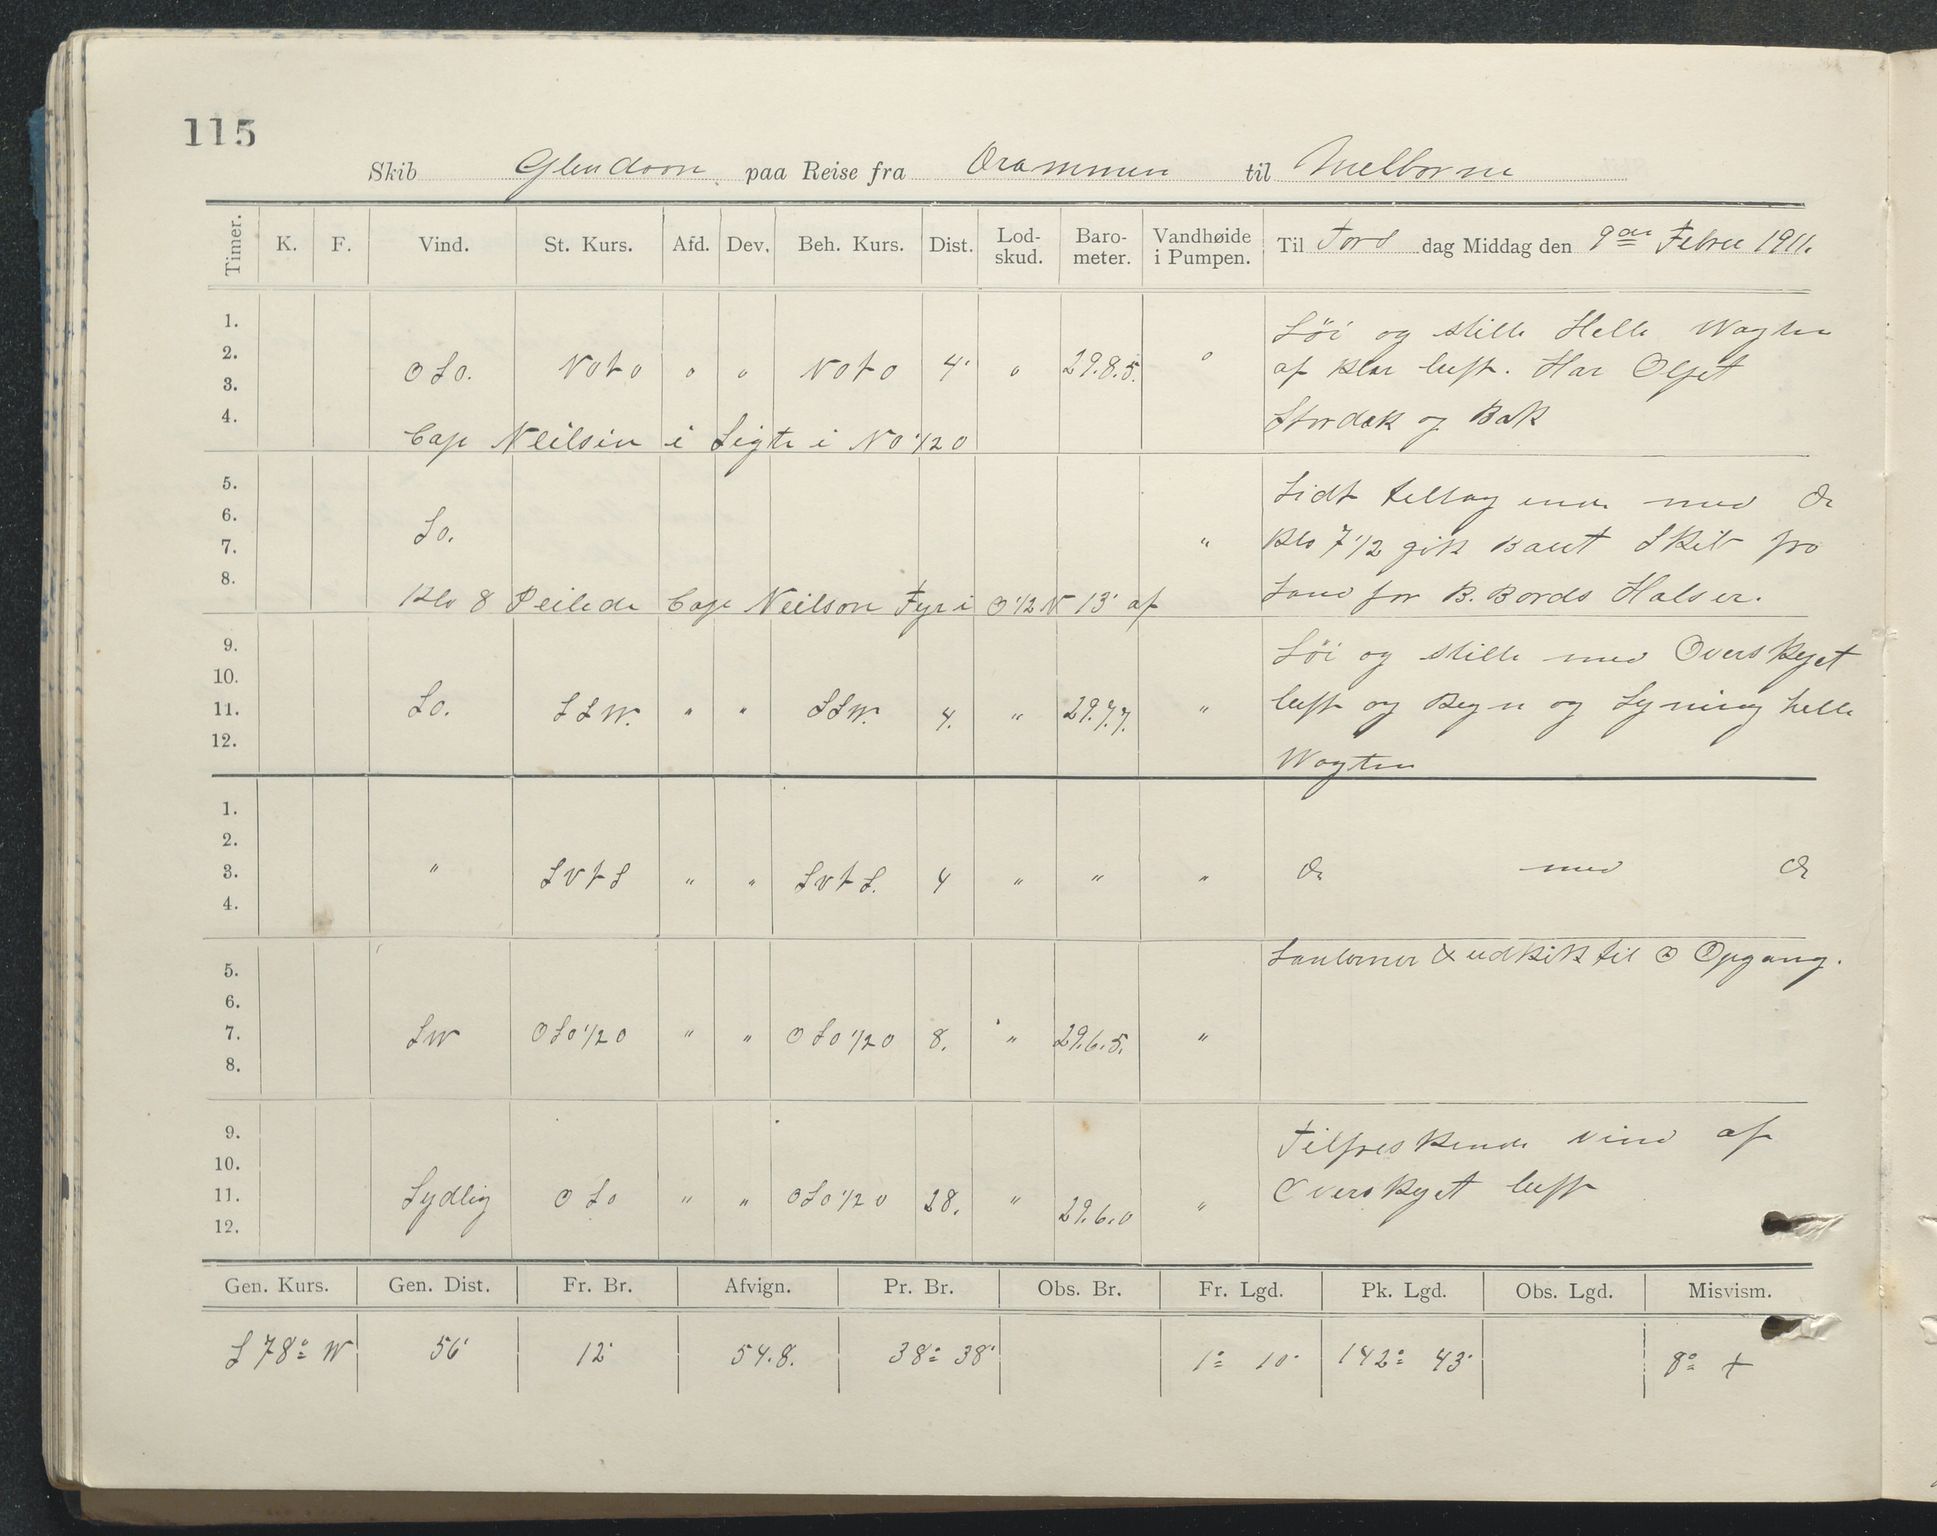 115
Skib Glendoon paa Reise fra Drammen til Melborne
Timer. K. F. Vind. St. Kurs. Afd. Dev. Beh. Kurs. Dist. Lod-skud. Baro-meter. Vandhøide i Pumpen. Til Tors dag Middag den 9de Febru 1911.
1.
2.
3.
4.
O S O. N O t O " " N O t O 4' " 29.8.5. "
Cap Neilsin i Sigte i N O 1/2 O
Løi og stille Helle Wagten
af klar luft. Har Oljet
Stordæk og Bak
5.
6.
7.
8.
S O. "
Klo 8 Peilede Cap Neilson Fyr i O 1/2 N 13' af
Lidt tiltagende med do
Klo 7 1/2 gik Baut Skib fra
Land for B. Bords Halser.
9.
10.
11.
12.
S O. S S W. " " S S W. 4. " 29.7.7. "
Løi og stille med Overskyet
luft og Regn og Lyning helle
Wagten
1.
2.
3.
4.
" S V t S " " S V t S. 4 " " "
do med do
5.
6.
7.
8.
S W O S O 1/2 O " " O S O 1/2 O 8. " 29.6.5. "
Lanterner & udkik til ☉ Opgang.
9.
10.
11.
12.
Sydlig O S O " " O S O 1/2 O 28. " 29.6.0 "
Tilfriskende vind af
Overskyet luft
Gen. Kurs. Gen. Dist. Fr. Br. Afvign. Pr. Br. Obs. Br. Fr. Lgd. Pk. Lgd. Obs. Lgd. Misvism.
S 78° W 56' 12' 54.8. 38° 38' 1° 10' 142° 43' 8° +